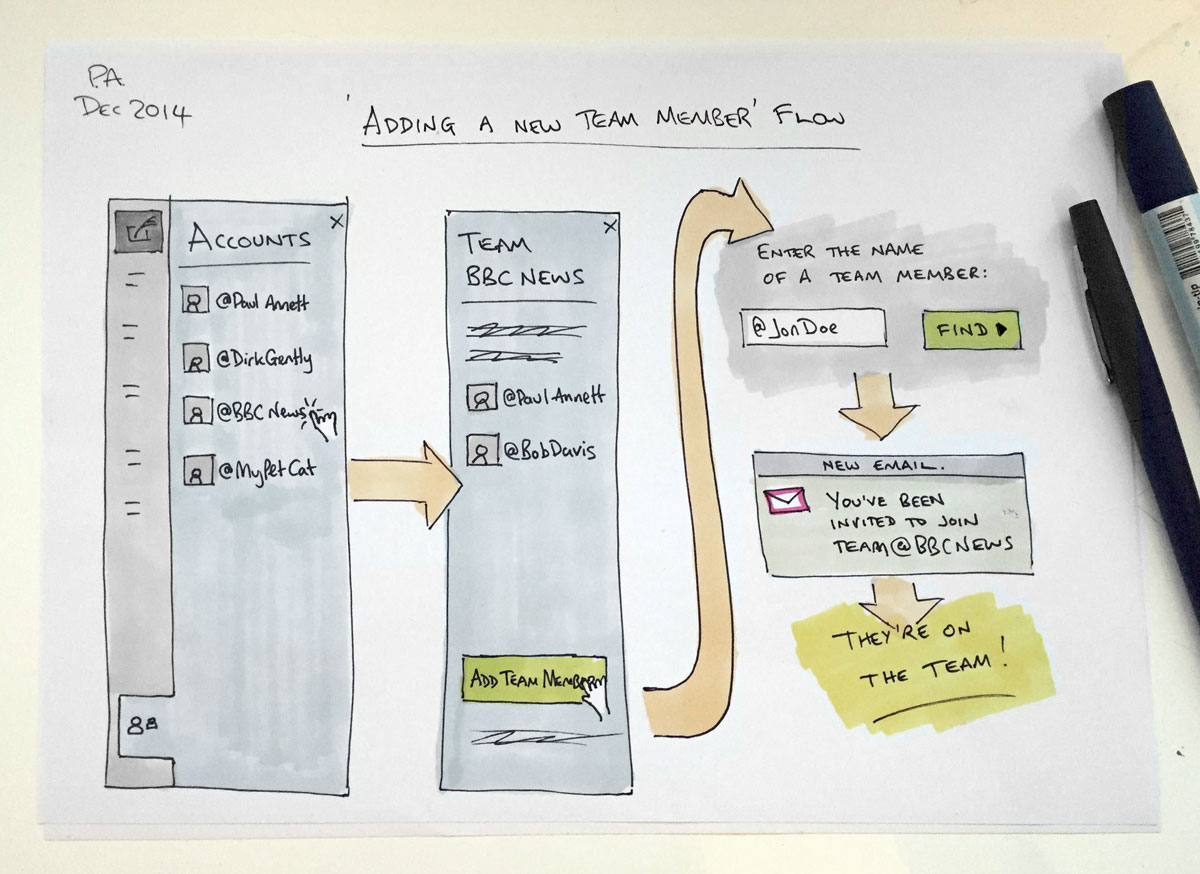 P.A.
DEC 2014
'ADDING A NEW TEAM MEMBER' FLOW
ACCOUNTS
X
@Paul Annett
@DirkGently
@BBC News
@MyPetCat
TEAM
BBC NEWS
X
@Paul Annett
@BobDavis
ADD TEAM MEMBER
ENTER THE NAME
OF A TEAM MEMBER:
@JonDoe
FIND
NEW EMAIL.
YOU'VE BEEN
INVITED TO JOIN
TEAM@BBCNEWS
THEY'RE ON
THE TEAM!